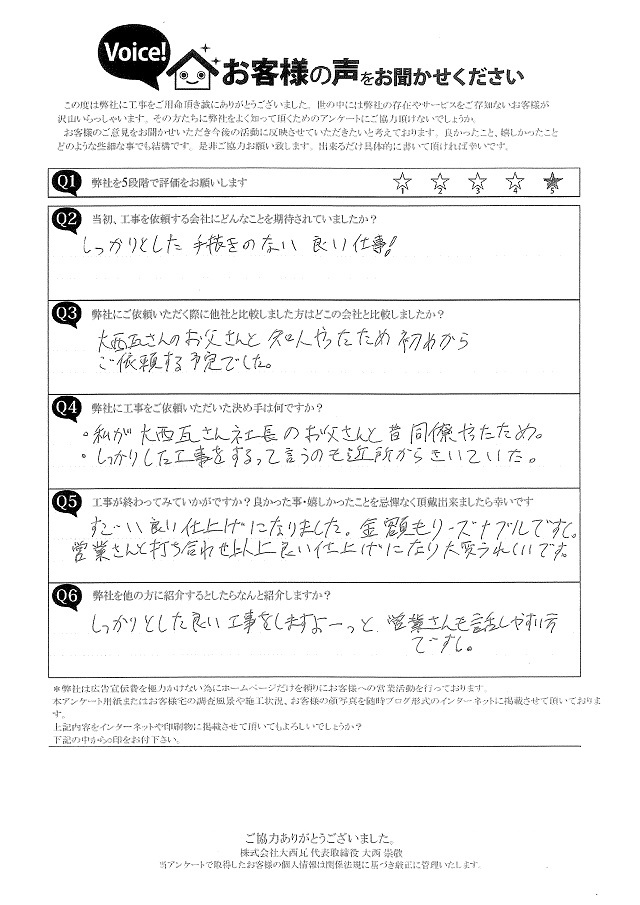 Voice!
お客様の声をお聞かせください
この度は弊社に工事をご用命頂き誠にありがとうございました。世の中には弊社の存在やサービスをご存知ないお客様が
沢山いらっしゃいます。その方たちに弊社をよく知って頂くためのアンケートにご協力頂けないでしょうか。
お客様のご意見をお聞かせいただき今後の活動に反映させていただきたいと考えております。良かったこと、嬉しかったこと
どのような些細な事でも結構です。是非ご協力お願い致します。出来るだけ具体的に書いて頂ければ幸いです。
Q1 弊社を5段階で評価をお願いします 1 2 3 4 5
Q2 当初、工事を依頼する会社にどんなことを期待されていましたか？
しっかりとした 手抜きのない 良い仕事!
Q3 弊社にご依頼いただく際に他社と比較しました方はどこの会社と比較しましたか？
大西瓦さんのお父さんと 知人やったため 初めから
ご依頼する予定でした。
Q4 弊社に工事をご依頼いただいた決め手は何ですか？
・私が 大西瓦さん社長のお父さんと昔 同僚やったため。
・しっかりした工事をするって言うのも近所からきいていた。
Q5 工事が終わってみていかがですか？良かった事・嬉しかったことを忌憚なく頂戴出来ましたら幸いです
すご〜い良い仕上げになりました。金額もリーズナブルですし。
営業さんと打ち合わせ以上良い仕上げになり大変うれしいです。
Q6 弊社を他の方に紹介するとしたらなんと紹介しますか？
しっかりとした良い工事をしますよーっと、営業さんも話しやすい方
ですし。
＊弊社は広告宣伝費を極力かけない為にホームページだけを頼りにお客様への営業活動を行っております。
本アンケート用紙またはお客様宅の調査風景や施工状況、お客様の顔写真を随時ブログ形式のインターネットに掲載させて頂いておりま
す。
上記内容をインターネットや印刷物に掲載させて頂いてもよろしいでしょうか？
下記の中から○印をお付下さい。
ご協力ありがとうございました。
株式会社大西瓦 代表取締役 大西 崇敬
当アンケートで取得したお客様の個人情報は関係法規に基づき厳正に管理いたします。